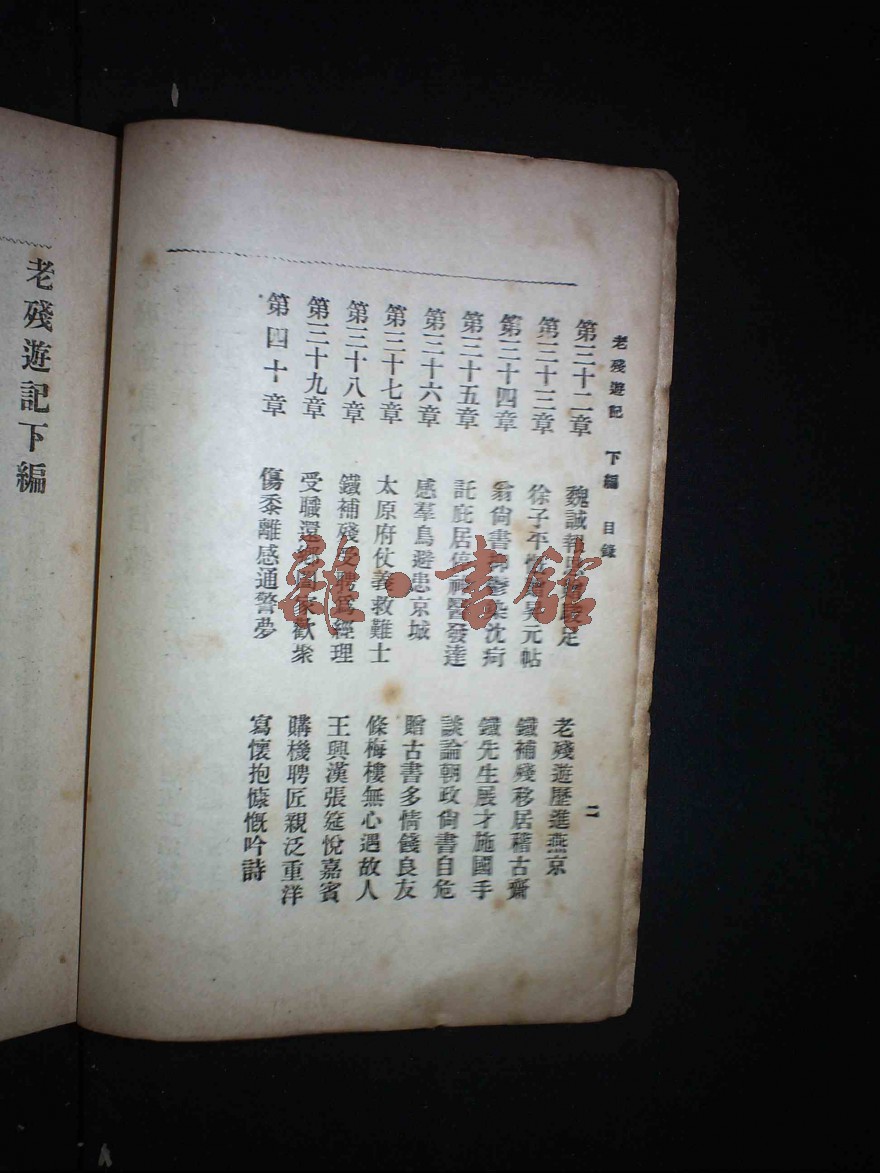 老殘遊記 下編 目錄 二
第三十二章 魏誠報 足 老殘遊歷進燕京
第三十三章 徐子平 吳元帖 鐵補殘移居稽古齋
第三十四章 翁尙書 染沈疴 鐵先生展才施國手
第三十五章 託庇居停神醫發達 談論朝政尙書自危
第三十六章 感羣鳥避患京城 贈古書多情餞良友
第三十七章 太原府仗義救難士 條梅樓無心遇故人
第三十八章 鐵補殘受聘爲經理 王興漢張筵悅嘉賓
第三十九章 受職還 歡聚 購機聘匠親泛重洋
第四十章 傷黍離感通警夢 寫懷抱慷慨吟詩
老殘遊記下編
龍•書館